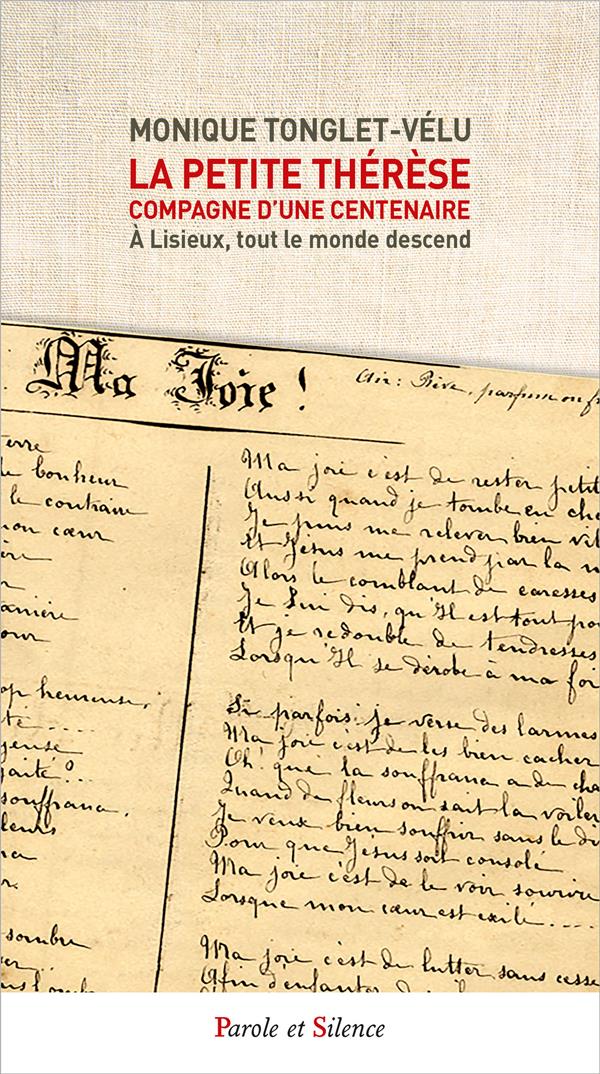 MONIQUE TONGLET-VÉLU
LA PETITE THÉRÈSE
COMPAGNE D'UNE CENTENAIRE
À Lisieux, tout le monde descend
Ma Joie !
Air : Rêve, parfum ou fr
terre
le bonheur
le contraire
mon cœur
ère
anière
our
op heureuse,
té ....
geuse
gaité ?..
souffrance.
fleurs
sombre
Ma joie c'est de rester petit
Aussi quand je tombe en che
Je puis me relever bien vit
Et Jésus me prend par la m
Alors le comblant de caresses
Je Lui dis, qu'Il est tout po
Et je redouble de tendresses
Lorsqu'Il se dérobe à ma foi
Si parfois je verse des larmes
Ma joie c'est de les bien cacher
Oh! que la souffrance a de cha
Quand de fleurs on sait la voiler
Je veux bien souffrir sans le di
Pour que Jésus soit consolé
Ma joie c'est de le voir sourire
Lorsque mon cœur est exilé ....
Ma joie c'est de lutter sans cesse
Afin d'enfanter de
Parole et Silence